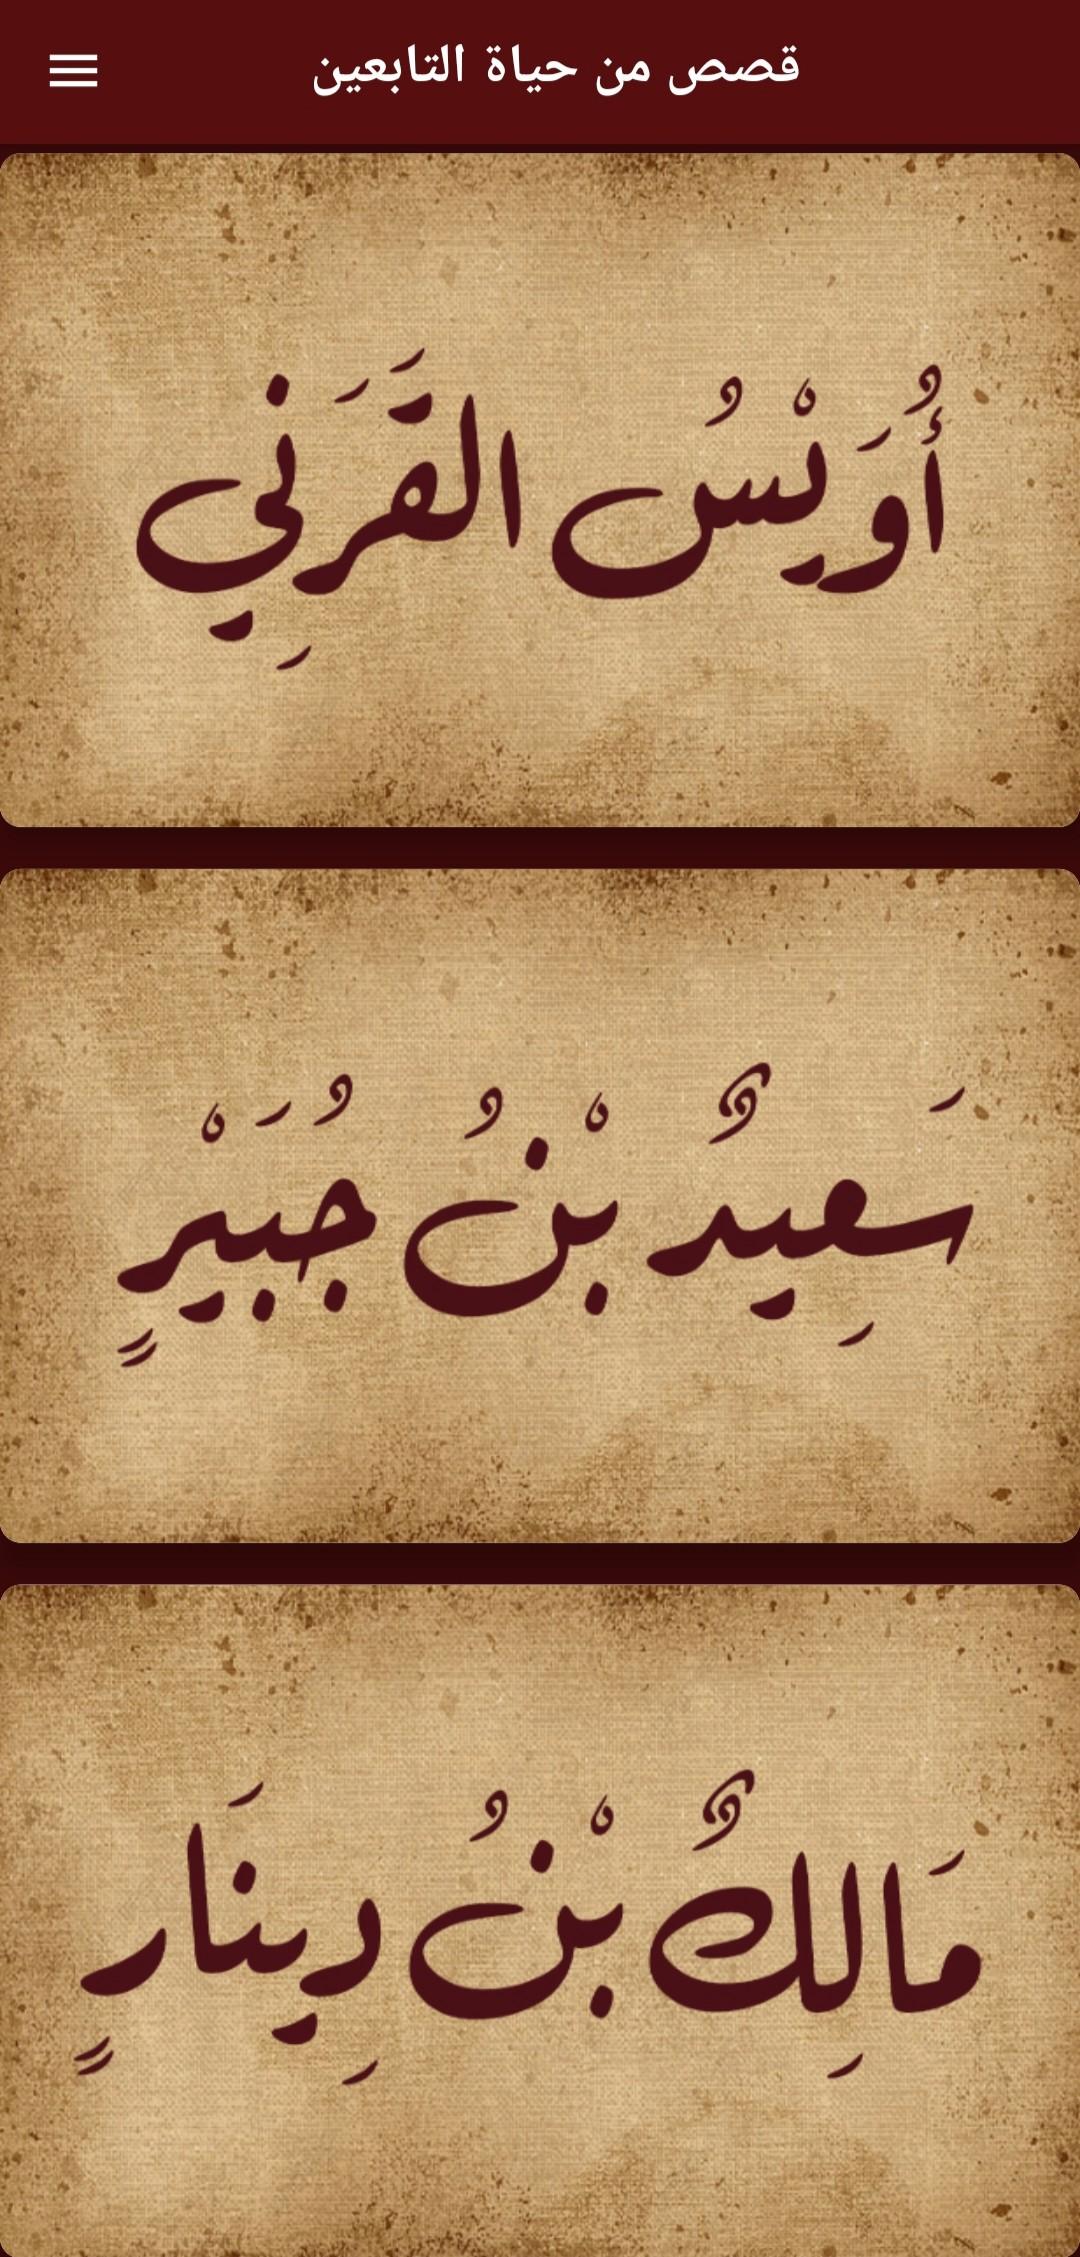 قصص من حياة التابعين
أُوَيْسُ القَرَنِي
سَعِيدٌ بْنُ جُبَيْرٍ
مَالِكٌ بْنُ دِينَارٍ